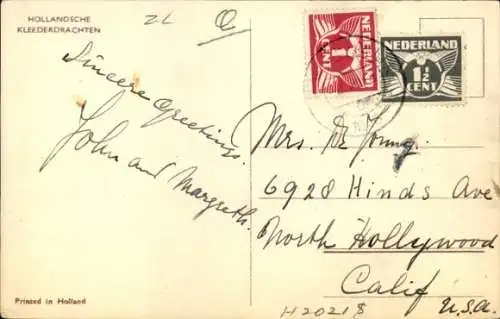 HOLLANDSCHE
KLEEDERDRACHTEN
Sincere Greetings.
John and Margreth.
Printed in Holland
1
CENT
NEDERLAND
NEDERLAND
1½
CENT
Mrs. De Young.
6928 Hinds Ave
North Hollywood
Calif
U.S.A.
H20218